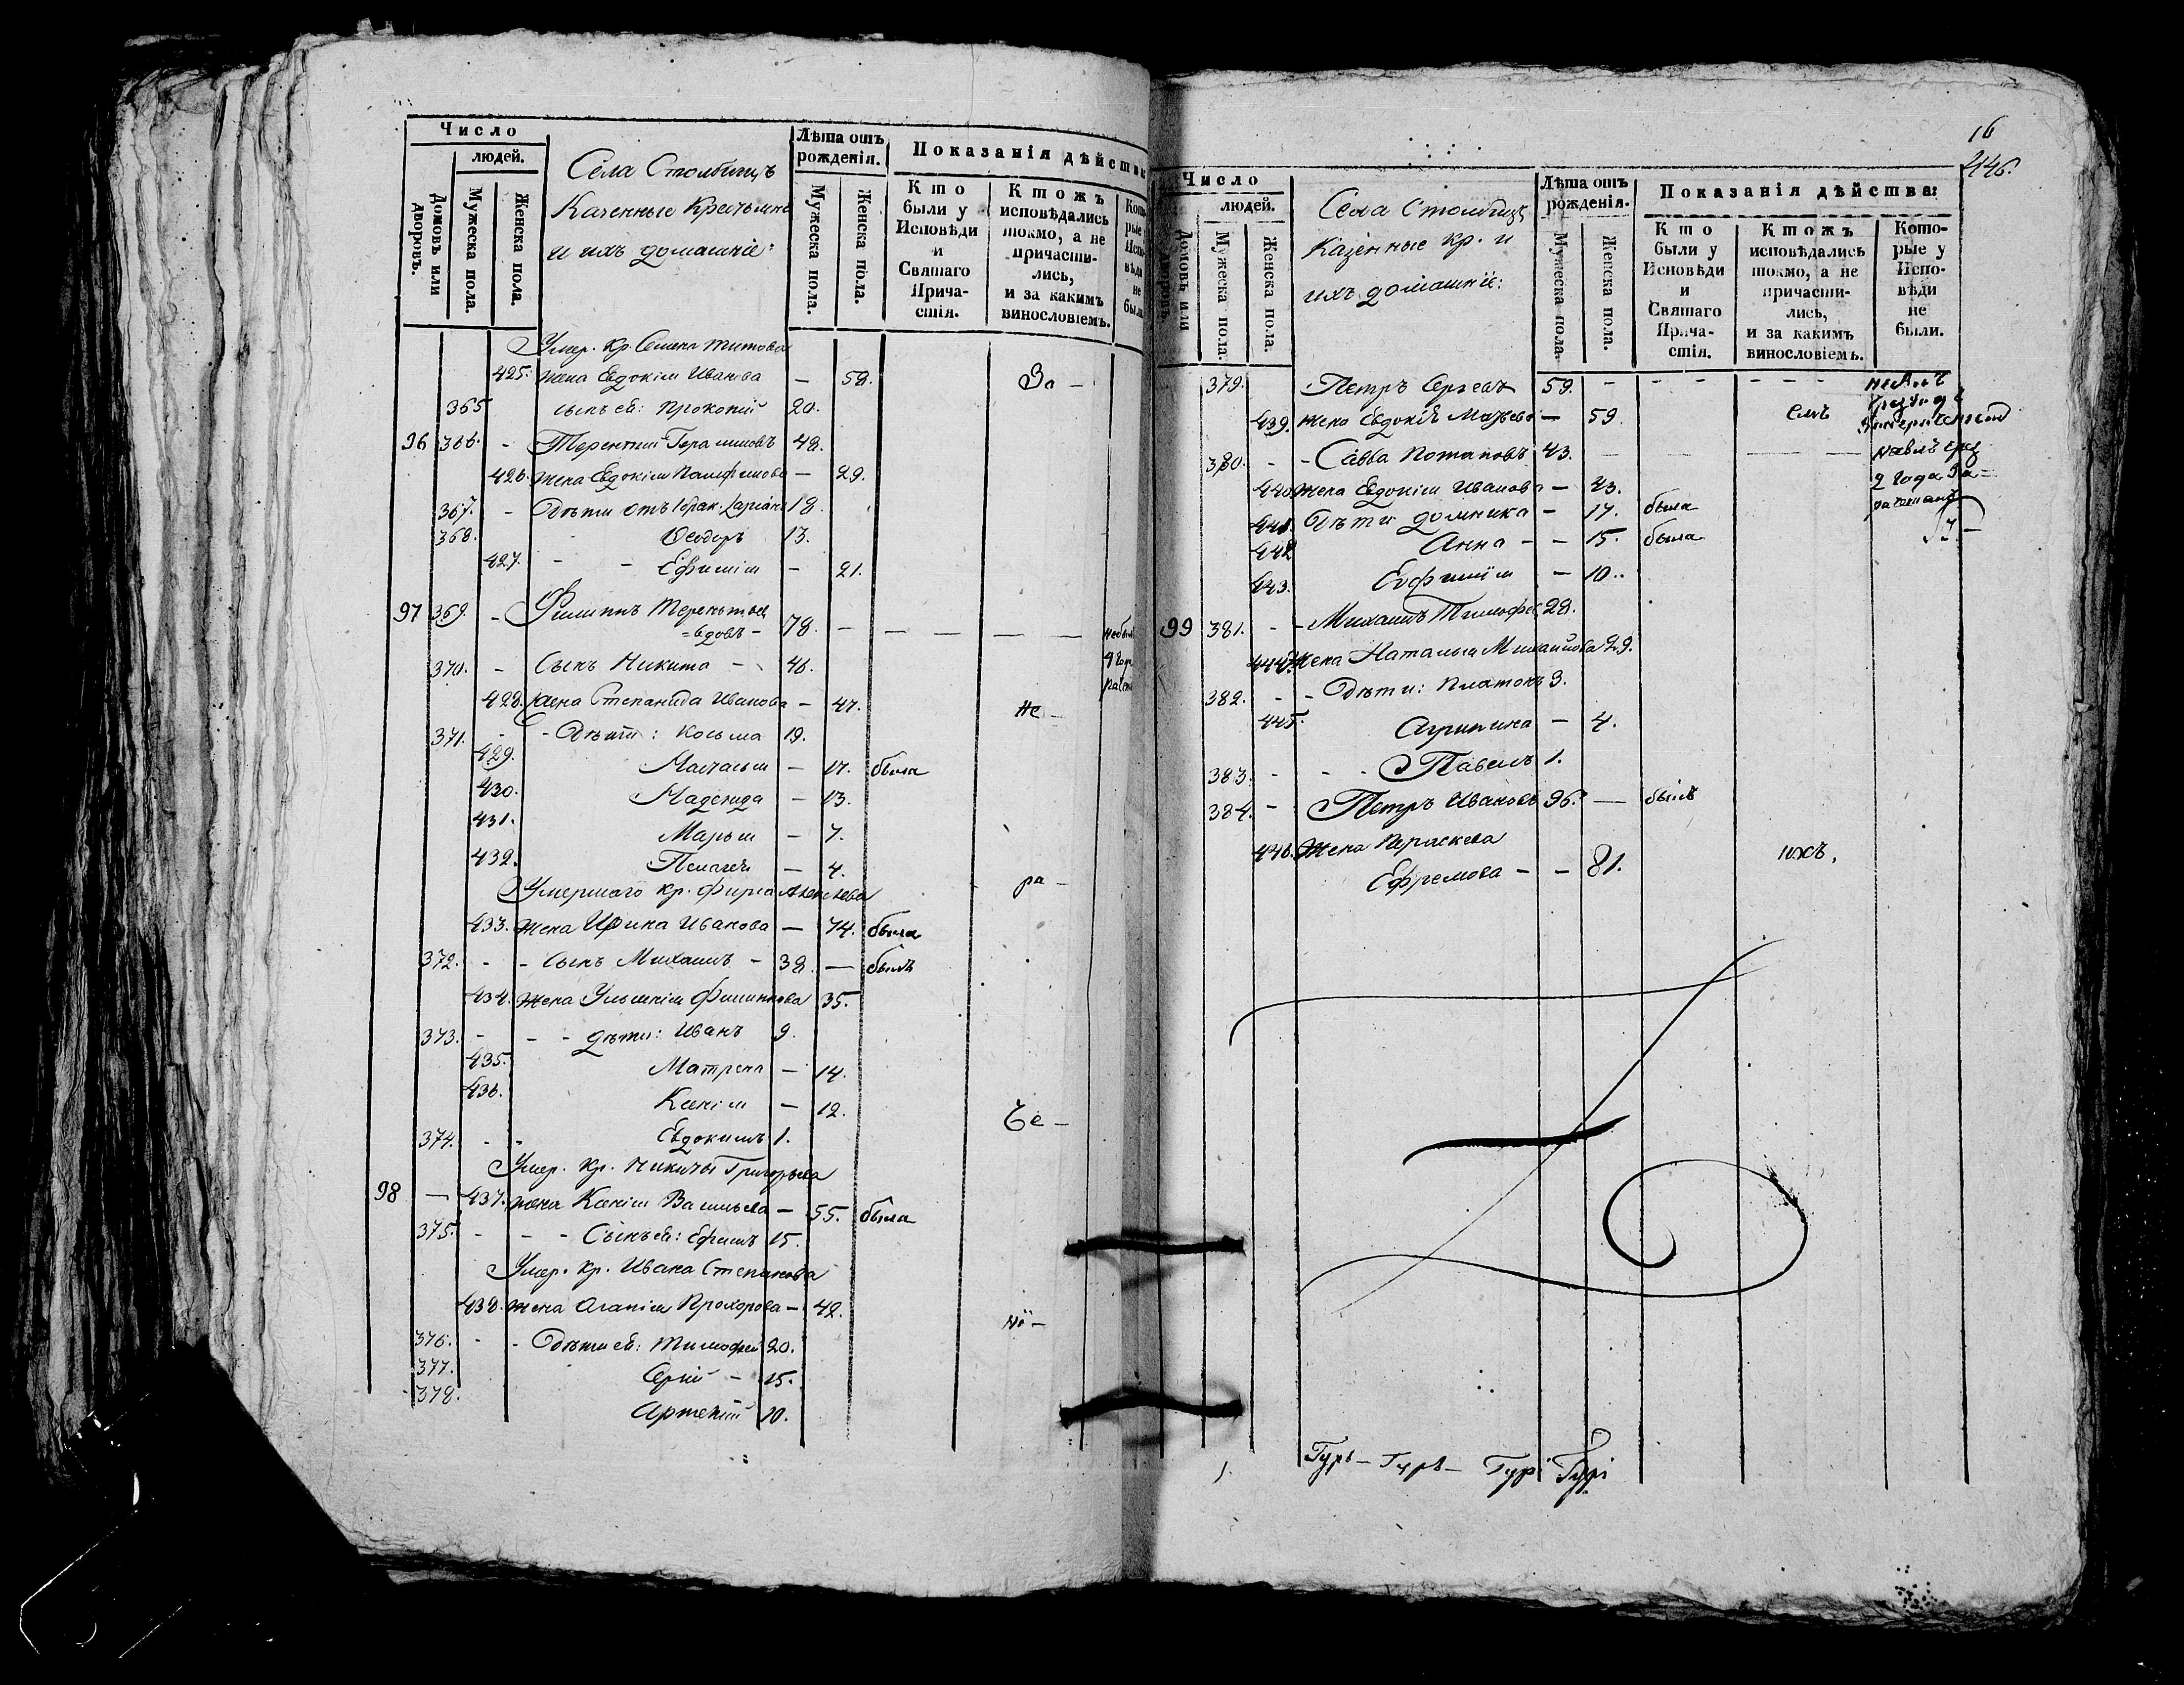 Число
людей.
Домовъ или дворовъ.
Мужеска пола.
Женска пола.
Села Столбищъ
Казенные Крестьяне
и ихъ домашніе:
Лѣта отъ рожденія.
Мужеска пола.
Женска пола.
Показанія дѣйства
Кто были у Исповѣди и Святаго Причастія.
Ктожъ исповѣдались токмо, а не причастились, и за какимъ винословіемъ.
Умер. кр. Семена Титова
425. жена Евдокія Иванова — 58. За —
365 сынъ ей: Прокопій 20.
96 366. - Терентій Герасимовъ 48.
426. жена Евдокія Памфилова — 29.
367. - Дѣти отъ 1 брак. 18.
368. Ѳеодоръ 13.
427. - - Ефимія - 21.
97 369. - Филиппъ Терентьев
=вдовъ- 78. — — — — —
370. - Сынъ Никита - 46.
428. жена Степанида Иванова - 47. не —
371. - - Дѣти: Косьма 19.
429. Наталья — 17. была
430. Надежда — 13.
431. Марья — 7.
432. Пелагея — 4.
Умершаго кр. Фирса ра —
433. Жена Ирина Иванова — 74. была
372. - - сынъ Михаилъ - 38. — былъ
434. Жена Ульянія Филиппова 35.
373. - - - дѣти: Иванъ 9.
435. Матрена — 14.
436. Ксенія — 12. че —
374. - - Евдокимъ 1.
Умер. кр. Никиты Григорьева
98 — 437. жена Ксенія Васильева — 55. была
375. - - - Сынъ ей: Ефимъ 15.
Умер. кр. Ивана Степанова
438. жена Агапія Прохорова — 42. ні —
376. - - Дѣти ей: Тимофей 20.
377. Сергій - 15.
378. Артемій 10.
16
Число
людей.
Домовъ или дворовъ.
Мужеска пола.
Женска пола.
Села Столбищъ
Казенные кр. и
ихъ домашніе:
Лѣта отъ рожденія.
Мужеска пола.
Женска пола.
Показанія дѣйства:
Кто были у Исповѣди и Святаго Причастія.
Ктожъ исповѣдались токмо, а не причастились, и за какимъ винословіемъ.
Которые у Исповѣди не были.
379. Петръ Сергеевъ 59. - - - - - -
439. жена Евдокія — 59. емъ
380. - - Савва Потаповъ 43. — — — —
440. Жена Евдокія Иванова — 43. 2 года
441. Дѣти Домника — 17. была
442 Анна - - 15. была
443. Евфимія — 10..
99 381. - - Михаилъ Тимофеев 28.
444. Жена Наталья Михайлова 29.
382. - - Дѣти: Платонъ 3.
445. Агрипина — 4.
383. - - - Павелъ 1.
384. - Петръ Ивановъ 96. — былъ
446. Жена Параскева
Ефремова - - 81. ихъ.
Гурі — Гурі — Гурі Гурі